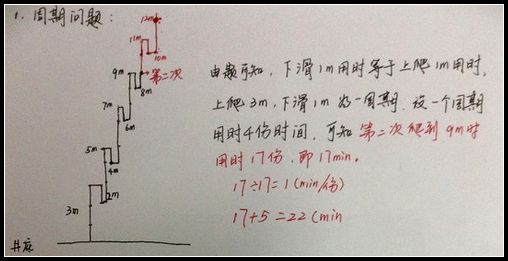 1. 周期问题:
12m
11m
10m
9m
第二次
8m
7m
6m
5m
4m
3m
2m
井底
由题可知, 下滑1m用时等于上爬1m用时,
上爬3m, 下滑1m为一周期. 设一个周期
用时4份时间, 可知 第二次爬到9m时
用时17份, 即17min。
17÷17=1(min/份)
17+5=22(min